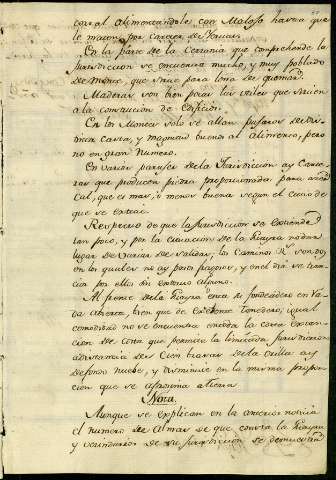 corral alimentandole con Maloja havra que
le mueran por carecer de Yervas.
En la parte de la Cerrania que comprehende la
Jurisdiccion se encuentra mucho, y muy poblado
de Monte, que sirve para leña de quemar.
Maderas son bien pocas las utiles que sirven
a la construccion de Edificios.
En los Montes solo se allan pajaros de dis-
tinta casta, y magnitud buenos al alimento, pero
no en gran numero.
En varios parages de la Jurisdiccion ay Cante-
ras que producen piedra proporcionada para
Cal, que es mas, o menos buena segun el sitio de
que se extrae.
Respecto de que la Jurisdiccion se extiende
tan poco, y por la situacion de la Guayra no da
lugar de variar de salidas, los Caminos Rs. son dos
en los quales no ay pasos fragosos, y en el dia se tran-
cita por ellos sin embarazo alguno.
Al frente de la Guayra esta su fondeadero en Ra-
da abierta, bien que de excelente tenedero, igual
comodidad no se encuentra en toda la corta exten-
cion de costa que permite la limitada Jurisdiccion
a distancia de Cien brazas de la orilla ay
de fondo nueve, y disminuie en la misma propor-
cion que se aproxima a tierra.
Nota.
Aunque se explican en la anterior noticia
el numero de Almas de que consta la Guayra
y vecindarios de su Jurisdiccion se demuestra